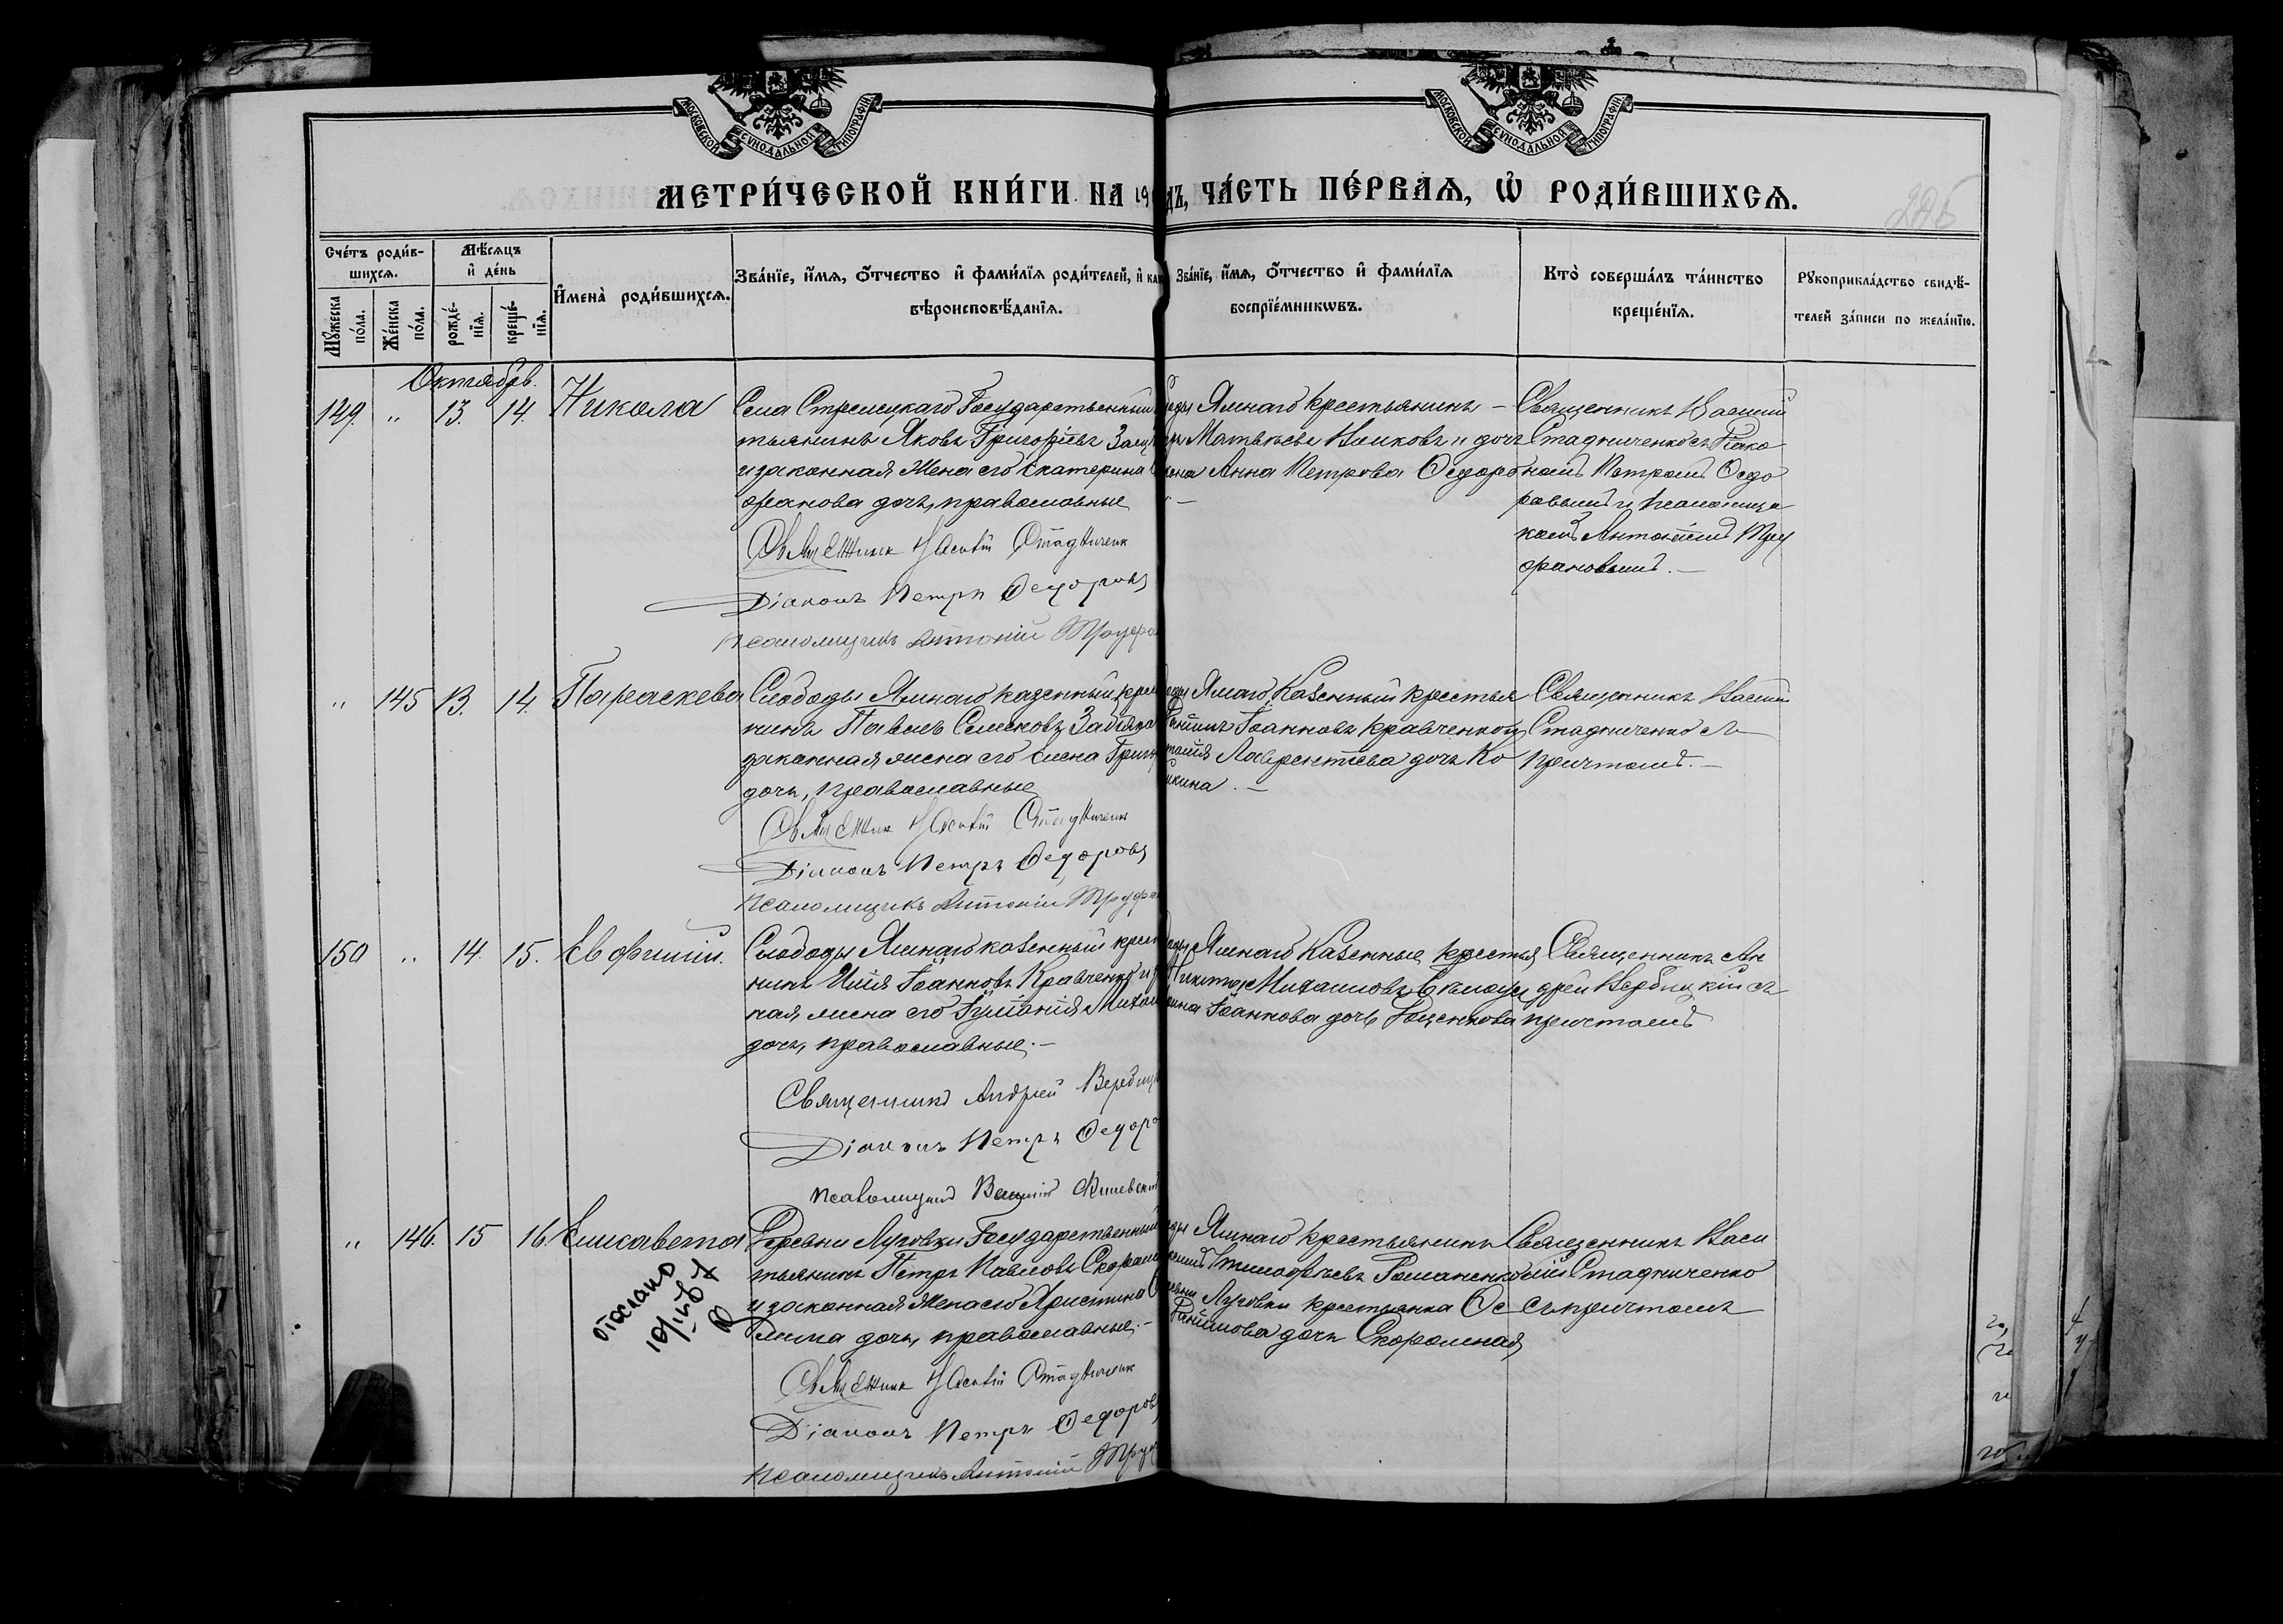 МОСКОВСКОЙ СѴНОДАЛЬНОЙ ТИПОГРАФІИ
МОСКОВСКОЙ СѴНОДАЛЬНОЙ ТИПОГРАФІИ
МЕТРИ́ЧЕСКОЙ КНИ́ГИ НА 19
ДЪ, ЧА́СТЬ ПЕ́РВАѦ, Ѡ҆ РОДИ́ВШИХСѦ.
Сче́тъ роди́в-
шихсѧ.
Мѣ́сѧцъ
и҆ де́нь
Мꙋ́жеска по́ла.
Же́нска по́ла.
рожде́-нїѧ.
креще́-нїѧ.
И҆мена̀ роди́вшихсѧ.
Зва́нїе, и҆́мѧ, ѻ҆́тчество и҆ фами́лїѧ роди́телей, и҆ как
вѣроисповѣ́данїѧ.
Зва́нїе, и҆́мѧ, ѻ҆́тчество и҆ фами́лїѧ
воспрїе́мникѡвъ.
Кто̀ соверша́лъ та́инство
креще́нїѧ.
Рꙋкоприкла́дство свидѣ́-
телей за́писи по жела́нїю.
Октябрь.
149. " 13. 14. Никола
Села Стрелецкаго Государственный
тьянинъ Яковъ Григорьевъ
и законная жена его Екатерина
фанова дочь, православные
Священник Василій Стадниченк
Діаконъ Петръ Ѳедоровъ
Псаломщикъ Антоній Труфа
Ямнаго крестьянинъ –
Матвѣевъ и дочь
Анна Петрова Ѳедоро
Священникъ Василій
Стадниченко съ Діако
номъ Петромъ Ѳедо
ровымъ и Псаломщи
комъ Антоніемъ Тру
фановымъ. –
" 145 13. 14. Параскева
Слободы Ямнаго казенный крес
нинъ Павелъ
законная жена его Елена Григ
дочь, православные
Священник Василій Стадниченк
Діаконъ Петръ Ѳедоровъ
Псаломщикъ Антоній Труфа
Ямнаго Казенный крестья
Іоанновъ Кравченко и
Лаврентіева дочь Ко
кина. –
Священникъ Василій
Стадниченко съ
причтомъ. –
150 " 14. 15. Евфимій.
Слободы Ямнаго казенный крес
нинъ Илія Іоанновъ Кравченко и
ная жена его Іуліанія Михаи
дочь, православные. –
Священникъ Андрей Вербицк
Діаконъ Петръ Ѳедоро
Псаломщикъ
Ямнаго Казенные крестья
Никита Михаиловъ
Іоаннова дочь
Священникъ Ан
дрей Вербицкій съ
причтомъ
" 146. 15 16. Елисавета
Деревни Луговки Государственный
тьянинъ Петръ Павловъ Скором
и законная жена его Христина
дочь, православные. –
Священник Василій Стадниченк
Діаконъ Петръ Ѳедоровъ
Псаломщикъ Антоній Труф
Ямнаго крестьянинъ
Тимофѣевъ Романенко
Луговки крестьянка Ѳе
дочь Скоромная
Священникъ Васи
лій Стадниченко
съ причтомъ